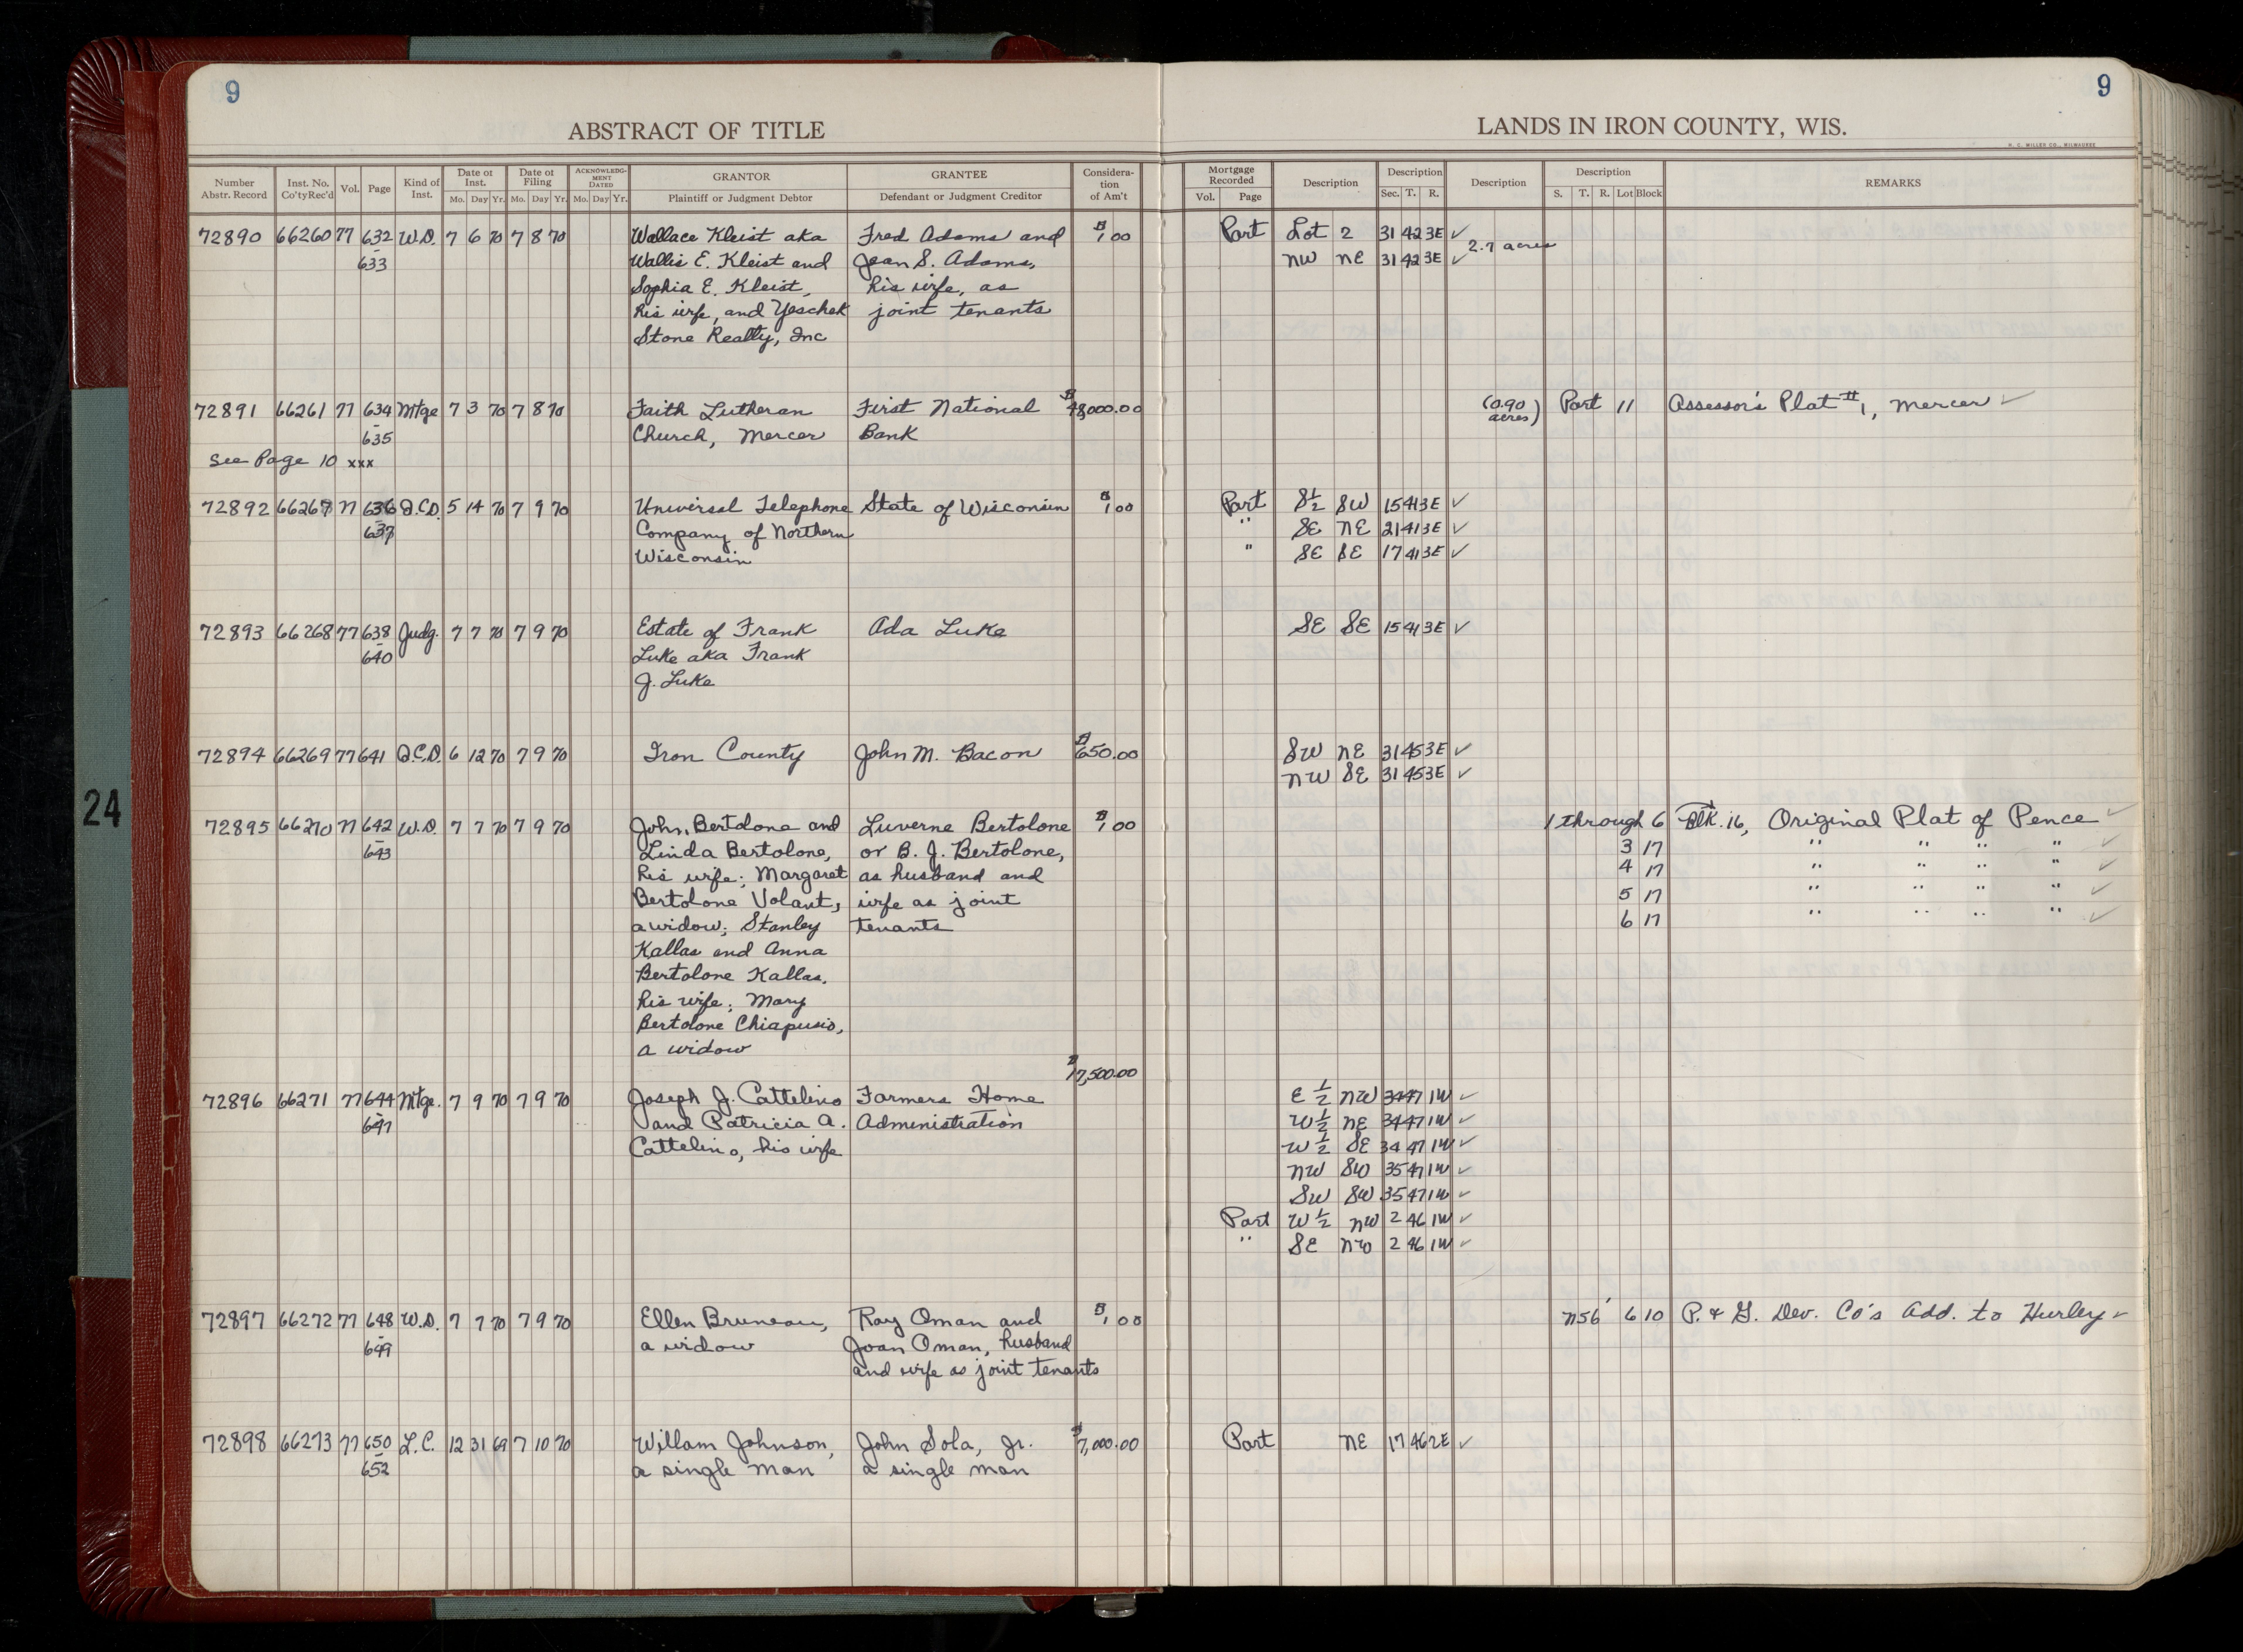 9
9
ABSTRACT OF TITLE
LANDS IN IRON COUNTY, WIS.
H. C. MILLER CO., MILWAUKEE
Number Abstr. Record Inst. No. Co'ty Rec'd Vol. Page Kind of Inst. Date of Inst. Mo. Day Yr. Date of Filing Mo. Day Yr. ACKNOWLEDGMENT DATED Mo. Day Yr. GRANTOR Plaintiff or Judgment Debtor GRANTEE Defendant or Judgment Creditor Consideration of Am't Mortgage Recorded Vol. Page Description Description Sec. T. R. Description Description S. T. R. Lot Block REMARKS
72890 66260 77 632 W.D. 7 6 70 7 8 70 Wallace Kleist aka Fred Adams and $1.00 Part Lot 2 31 42 3E ✓
633 Wallis E. Kleist and Jean S. Adams, NW NE 31 42 3E ✓ 2.7 acres
Sophia E. Kleist, his wife, as
his wife, and Yeschek joint tenants
Stone Realty, Inc
72891 66261 77 634 Mtge 7 3 70 7 8 70 Faith Lutheran First National $48,000.00 (0.90 acres) Part 11 Assessor's Plat #1, Mercer ✓
635 Church, Mercer Bank
See Page 10 xxx
72892 66267 77 636 Q.C.D. 5 14 70 7 9 70 Universal Telephone State of Wisconsin $1.00 Part S½ SW 15 41 3E ✓
637 Company of Northern " SE NE 21 41 3E ✓
Wisconsin " SE SE 17 41 3E ✓
72893 66268 77 638 Judg. 7 7 70 7 9 70 Estate of Frank Ada Luke SE SE 15 41 3E ✓
640 Luke aka Frank
J. Luke
72894 66269 77 641 Q.C.D. 6 12 70 7 9 70 Iron County John M. Bacon $650.00 SW NE 31 45 3E ✓
NW SE 31 45 3E ✓
24
72895 66270 77 642 W.D. 7 7 70 7 9 70 John Bertolone and Luverne Bertolone $1.00 1 through 6 Blk. 16, Original Plat of Pence ✓
643 Linda Bertolone, or B. J. Bertolone, 3 17 " " " " ✓
his wife; Margaret as husband and 4 17 " " " " ✓
Bertolone Volant, wife as joint 5 17 " " " " ✓
a widow; Stanley tenants 6 17 " " " " ✓
Kallas and Anna
Bertolone Kallas,
his wife; Mary
Bertolone Chiapusio,
a widow
72896 66271 77 644 Mtge. 7 9 70 7 9 70 Joseph J. Cattelino Farmers Home $17,500.00 E½ NW 34 47 1W ✓
647 and Patricia A. Administration W½ NE 34 47 1W ✓
Cattelino, his wife W½ SE 34 47 1W ✓
NW SW 35 47 1W ✓
SW SW 35 47 1W ✓
Part W½ NW 2 46 1W ✓
" SE NW 2 46 1W ✓
72897 66272 77 648 W.D. 7 7 70 7 9 70 Ellen Bruneau, Ray Oman and $1.00 N56' 6 10 P. & G. Dev. Co's Add. to Hurley ✓
649 a widow Joan Oman, husband
and wife as joint tenants
72898 66273 77 650 L.C. 12 31 69 7 10 70 Willam Johnson, John Sola, Jr. $7,000.00 Part NE 17 46 2E ✓
652 a single man a single man